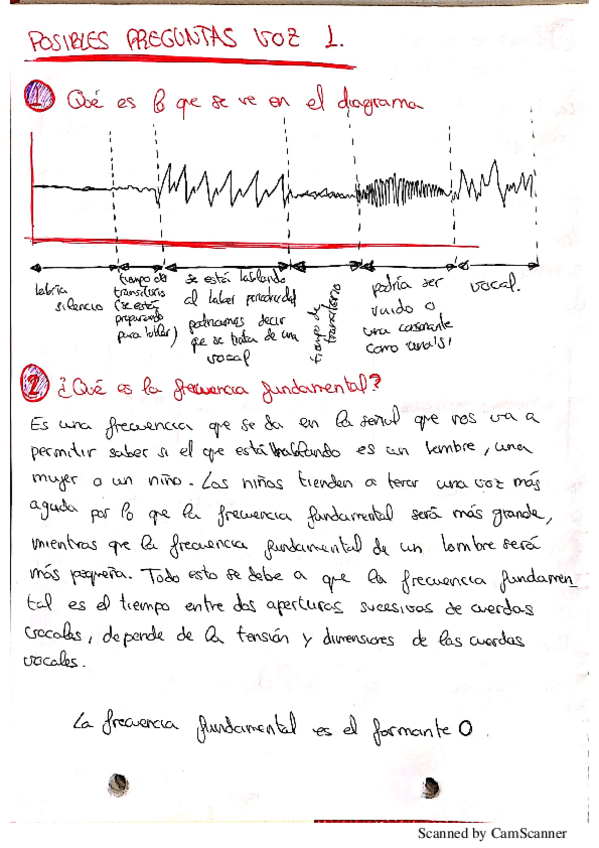 POSIBLES PREGUNTAS VOZ 1.
1 Qué es lo que se ve en el diagrama
habría silencio
tiempo de transitorio (se está preparando para hablar)
se está hablando al haber periodicidad podríamos decir que se trata de una vocal
tiempo de transitorio
podría ser ruido o una consonante como una 's'
vocal.
2 ¿Qué es la frecuencia fundamental?
Es una frecuencia que se da en la señal que nos va a
permitir saber si el que está hablando es un hombre, una
mujer o un niño. Las niñas tienden a tener una voz más
aguda por lo que la frecuencia fundamental será más grande,
mientras que la frecuencia fundamental de un hombre será
más pequeña. Todo esto se debe a que la frecuencia fundamen
tal es el tiempo entre dos aperturas sucesivas de cuerdas
vocales, depende de la tensión y dimensiones de las cuerdas
vocales.
La frecuencia fundamental es el formante 0.
Scanned by CamScanner